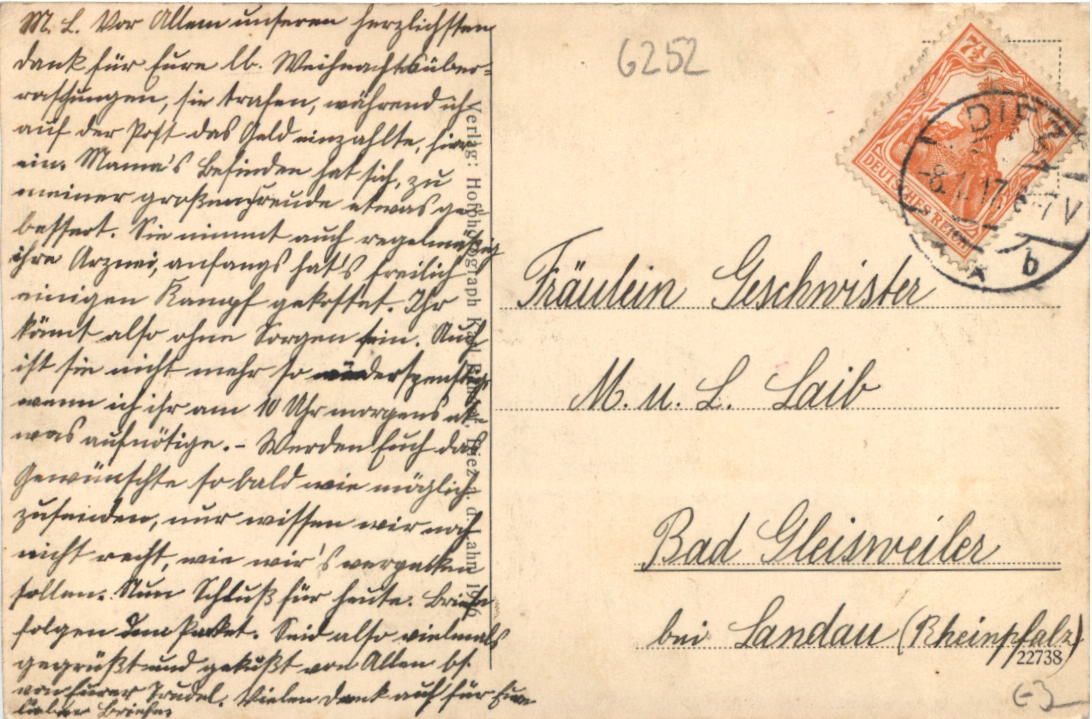 M. L. Vor Allem unseren herzlichsten
Dank für Eure lb. Weihnachtsüber-
raschungen, sie trafen, während ich
auf der Post das Geld einzahlte, hier
ein. Mama's Befinden hat sich, zu
meiner großen Freude etwas ge-
bessert. Sie nimmt auch regelmäßig
ihre Arznei, anfangs hat's freilich
einigen Kampf gekostet. Ihr
könnt also ohne Sorgen sein. Auch
ist sie nicht mehr so widerspenstig
wenn ich ihr am 10 Uhr morgens et-
was aufnötige. - Werden Euch das
Gewünschte so bald wie möglich
zusenden, nur wissen wir noch
nicht recht, wie wir's verpacken
sollen. Nun Schluß für heute. Briefe
folgen dem Paket. Seid also vielmals
gegrüßt und geküßt von Allen bs.
von Eurer Trudel. Vielen Dank auch für Eure
lieben Briefe
Verlag: Hofphotograph Diez a. d. Lahn 1916
6252
7½
DEUTSCHES REICH
DIEZ
-8.1.17. 6-7 V
* b
Fräulein Geschwister
M. u. L. Laib
Bad Gleisweiler
bei Landau (Rheinpfalz)
22738